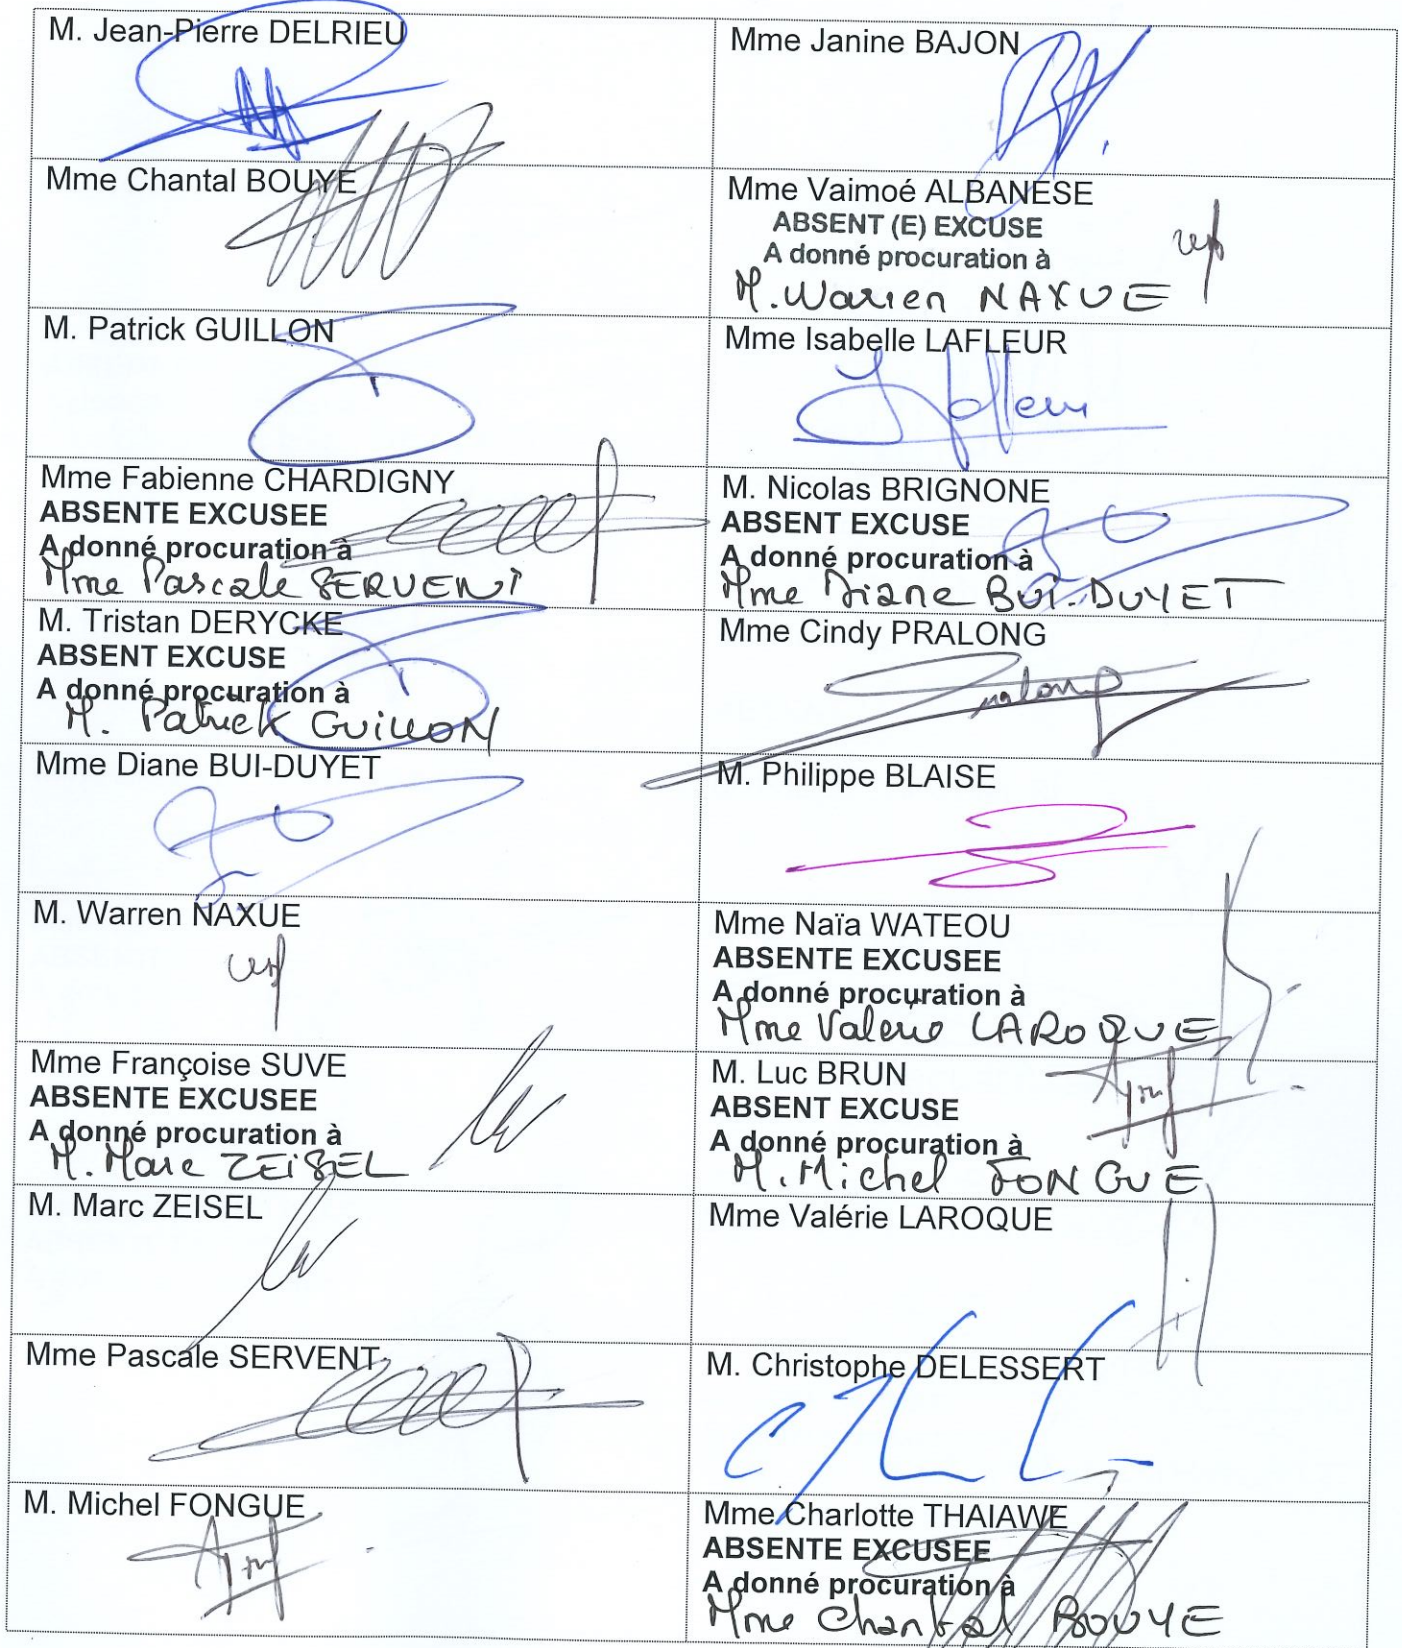 M. Jean-Pierre DELRIEU
Mme Janine BAJON
Mme Chantal BOUYE
Mme Vaimoé ALBANESE
ABSENT (E) EXCUSE
A donné procuration à
M. Warren NAXUE
M. Patrick GUILLON
Mme Isabelle LAFLEUR
Lafleur
Mme Fabienne CHARDIGNY
ABSENTE EXCUSEE
A donné procuration à
Mme Pascale SERVENT
M. Nicolas BRIGNONE
ABSENT EXCUSE
A donné procuration à
Mme Diane BUI-DUYET
M. Tristan DERYCKE
ABSENT EXCUSE
A donné procuration à
M. Patrick GUILLON
Mme Cindy PRALONG
Pralong
Mme Diane BUI-DUYET
M. Philippe BLAISE
M. Warren NAXUE
Mme Naïa WATEOU
ABSENTE EXCUSEE
A donné procuration à
Mme Valérie LAROQUE
Mme Françoise SUVE
ABSENTE EXCUSEE
A donné procuration à
M. Marc ZEISEL
M. Luc BRUN
ABSENT EXCUSE
A donné procuration à
M. Michel FONGUE
M. Marc ZEISEL
Mme Valérie LAROQUE
Mme Pascale SERVENT
M. Christophe DELESSERT
M. Michel FONGUE
Mme Charlotte THAIAWE
ABSENTE EXCUSEE
A donné procuration à
Mme Chantal BOUYE